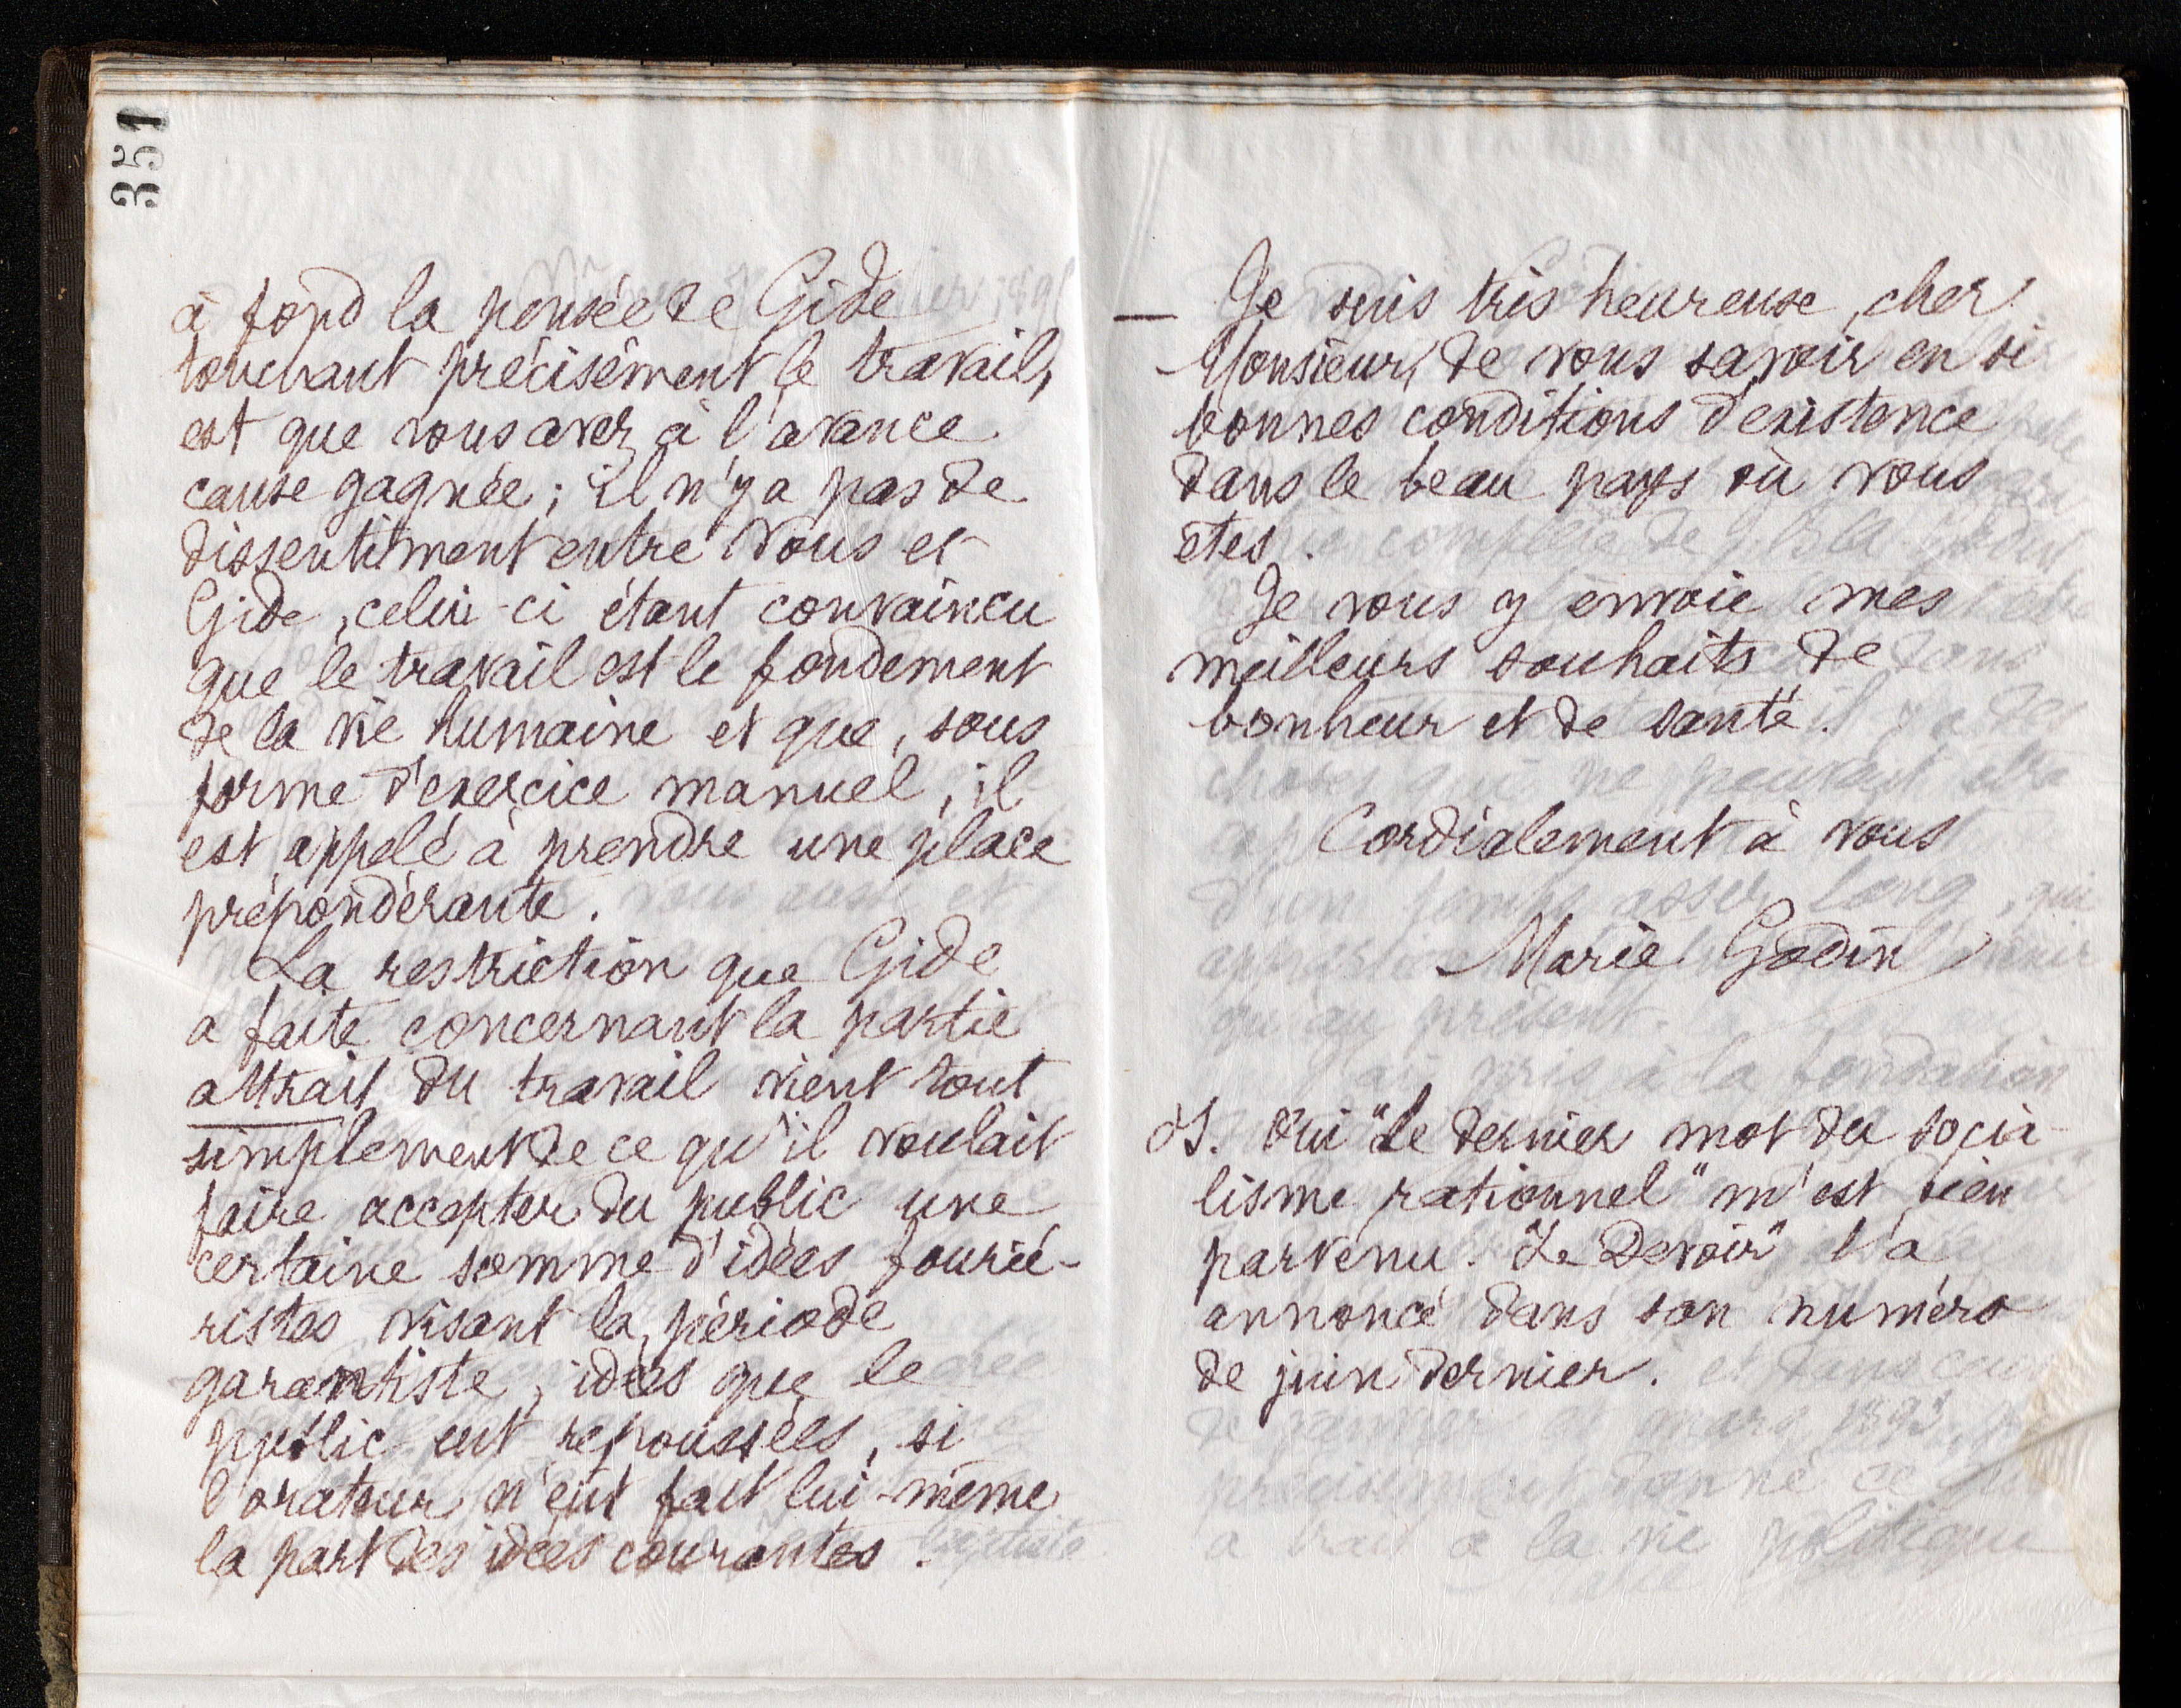 351
à fond la pensée de Gide
touchant précisément le travail,
est que vous avez à l'avance
cause gagnée ; il n'y a pas de
dissentiment entre vous et
Gide, celui-ci étant convaincu
que le travail est le fondement
de la vie humaine et que, sous
forme d'exercice manuel, il
est appelé à prendre une place
prépondérante.
La restriction que Gide
a faite concernant la partie
attrait du travail vient tout
simplement de ce qu'il voulait
faire accepter du public une
certaine somme d'idées fourié-
ristes visant la période
garantiste, idées que le
public eut repoussées, si
l'orateur n'eût fait lui-même
la part des idées courantes.
— Je suis très heureuse, cher
Monsieur, de vous savoir en si
bonnes conditions d'existence
dans le beau pays où vous
êtes.
Je vous y envoie mes
meilleurs souhaits de
bonheur et de santé.
Cordialement à vous
Marie Godin
Oui "Le dernier mot du socia-
lisme rationnel" m'est bien
parvenu. "Le Devoir" l'a
annoncé dans son numéro
de juin dernier.